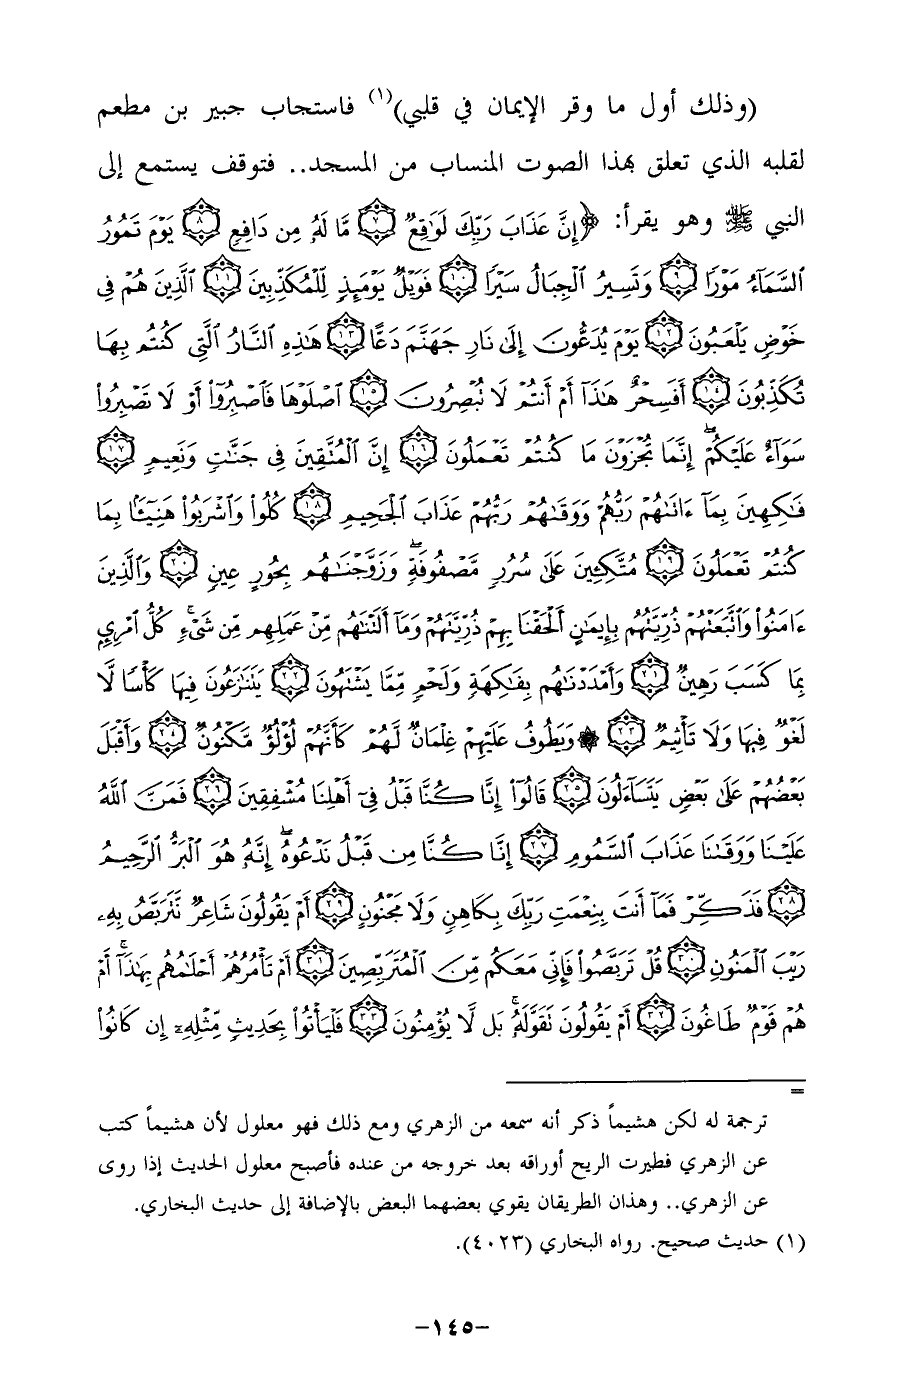 (وذلك أول ما وقر الإيمان في قلبي)(١) فاستجاب جبير بن مطعم
لقلبه الذي تعلق بهذا الصوت المنساب من المسجد.. فتوقف يستمع إلى
النبي ﷺ وهو يقرأ: ﴿إِنَّ عَذَابَ رَبِّكَ لَوَٰقِعٌ ٧ مَّا لَهُۥ مِن دَافِعٍ ٨ يَوْمَ تَمُورُ
ٱلسَّمَآءُ مَوْرًا ٩ وَتَسِيرُ ٱلْجِبَالُ سَيْرًا ١٠ فَوَيْلٌ يَوْمَئِذٍ لِّلْمُكَذِّبِينَ ١١ ٱلَّذِينَ هُمْ فِى
خَوْضٍ يَلْعَبُونَ ١٢ يَوْمَ يُدَعُّونَ إِلَىٰ نَارِ جَهَنَّمَ دَعًّا ١٣ هَٰذِهِ ٱلنَّارُ ٱلَّتِى كُنتُم بِهَا
تُكَذِّبُونَ ١٤ أَفَسِحْرٌ هَٰذَآ أَمْ أَنتُمْ لَا تُبْصِرُونَ ١٥ ٱصْلَوْهَا فَٱصْبِرُوٓا۟ أَوْ لَا تَصْبِرُوا۟
سَوَآءٌ عَلَيْكُمْ ۖ إِنَّمَا تُجْزَوْنَ مَا كُنتُمْ تَعْمَلُونَ ١٦ إِنَّ ٱلْمُتَّقِينَ فِى جَنَّٰتٍ وَنَعِيمٍ ١٧
فَٰكِهِينَ بِمَآ ءَاتَىٰهُمْ رَبُّهُمْ وَوَقَىٰهُمْ رَبُّهُمْ عَذَابَ ٱلْجَحِيمِ ١٨ كُلُوا۟ وَٱشْرَبُوا۟ هَنِيٓـًٔۢا بِمَا
كُنتُمْ تَعْمَلُونَ ١٩ مُتَّكِـِٔينَ عَلَىٰ سُرُرٍ مَّصْفُوفَةٍ ۖ وَزَوَّجْنَٰهُم بِحُورٍ عِينٍ ٢٠ وَٱلَّذِينَ
ءَامَنُوا۟ وَٱتَّبَعَتْهُمْ ذُرِّيَّتُهُم بِإِيمَٰنٍ أَلْحَقْنَا بِهِمْ ذُرِّيَّتَهُمْ وَمَآ أَلَتْنَٰهُم مِّنْ عَمَلِهِم مِّن شَىْءٍ ۚ كُلُّ ٱمْرِئٍۭ
بِمَا كَسَبَ رَهِينٌ ٢١ وَأَمْدَدْنَٰهُم بِفَٰكِهَةٍ وَلَحْمٍ مِّمَّا يَشْتَهُونَ ٢٢ يَتَنَٰزَعُونَ فِيهَا كَأْسًا لَّا
لَغْوٌ فِيهَا وَلَا تَأْثِيمٌ ٢٣ ۞ وَيَطُوفُ عَلَيْهِمْ غِلْمَانٌ لَّهُمْ كَأَنَّهُمْ لُؤْلُؤٌ مَّكْنُونٌ ٢٤ وَأَقْبَلَ
بَعْضُهُمْ عَلَىٰ بَعْضٍ يَتَسَآءَلُونَ ٢٥ قَالُوٓا۟ إِنَّا كُنَّا قَبْلُ فِىٓ أَهْلِنَا مُشْفِقِينَ ٢٦ فَمَنَّ ٱللَّهُ
عَلَيْنَا وَوَقَىٰنَا عَذَابَ ٱلسَّمُومِ ٢٧ إِنَّا كُنَّا مِن قَبْلُ نَدْعُوهُ ۖ إِنَّهُۥ هُوَ ٱلْبَرُّ ٱلرَّحِيمُ
٢٨ فَذَكِّرْ فَمَآ أَنتَ بِنِعْمَتِ رَبِّكَ بِكَاهِنٍ وَلَا مَجْنُونٍ ٢٩ أَمْ يَقُولُونَ شَاعِرٌ نَّتَرَبَّصُ بِهِۦ
رَيْبَ ٱلْمَنُونِ ٣٠ قُلْ تَرَبَّصُوا۟ فَإِنِّى مَعَكُم مِّنَ ٱلْمُتَرَبِّصِينَ ٣١ أَمْ تَأْمُرُهُمْ أَحْلَٰمُهُم بِهَٰذَآ ۚ أَمْ
هُمْ قَوْمٌ طَاغُونَ ٣٢ أَمْ يَقُولُونَ تَقَوَّلَهُۥ ۚ بَل لَّا يُؤْمِنُونَ ٣٣ فَلْيَأْتُوا۟ بِحَدِيثٍ مِّثْلِهِۦٓ إِن كَانُوا۟
=
ترجمة له لكن هشيماً ذكر أنه سمعه من الزهري ومع ذلك فهو معلول لأن هشيماً كتب
عن الزهري فطيرت الريح أوراقه بعد خروجه من عنده فأصبح معلول الحديث إذا روى
عن الزهري.. وهذان الطريقان يقوي بعضهما البعض بالإضافة إلى حديث البخاري.
(١) حديث صحيح. رواه البخاري (٤٠٢٣).
-١٤٥-